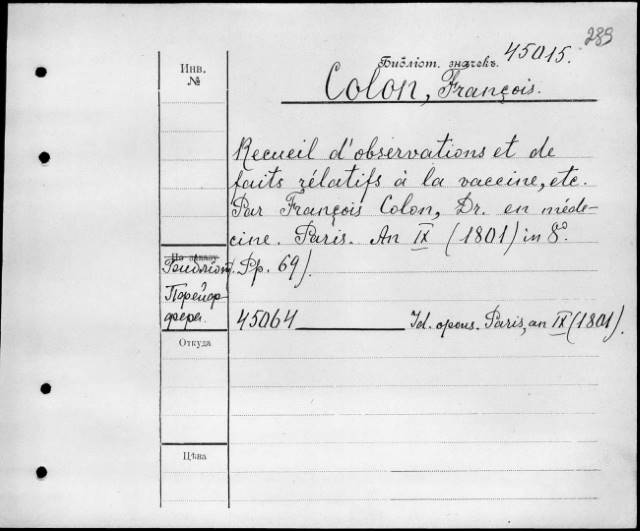 289
Библіот. значекъ. 45015.
Инв.
№
Colon, François.
Recueil d'observations et de
faits rélatifs à la vaccine, etc.
Par François Colon, Dr. en méde-
cine. Paris. An IX (1801) in 8°.
По заказу
Библіот. Pp. 69).
45064 Id. opus. Paris, an IX (1801).
Откуда
Цѣна